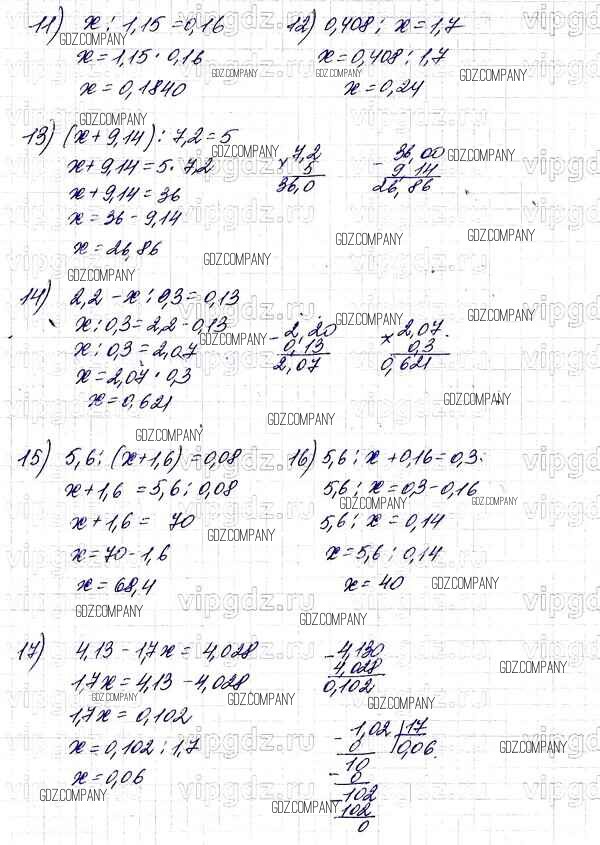 11) x : 1,15 = 0,16
x = 1,15 · 0,16
x = 0,1840
12) 0,408 : x = 1,7
x = 0,408 : 1,7
x = 0,24
13) (x + 9,14) : 7,2 = 5
x + 9,14 = 5 · 7,2
x + 9,14 = 36
x = 36 - 9,14
x = 26,86
× 7,2
5
36,0
- 36,00
9 14
26,86
14) 2,2 - x : 0,3 = 0,13
x : 0,3 = 2,2 - 0,13
x : 0,3 = 2,07
x = 2,07 · 0,3
x = 0,621
- 2,20
0,13
2,07
× 2,07
0,3
0,621
15) 5,6 : (x + 1,6) = 0,08
x + 1,6 = 5,6 : 0,08
x + 1,6 = 70
x = 70 - 1,6
x = 68,4
16) 5,6 : x + 0,16 = 0,3
5,6 : x = 0,3 - 0,16
5,6 : x = 0,14
x = 5,6 : 0,14
x = 40
17) 4,13 - 1,7x = 4,028
1,7x = 4,13 - 4,028
1,7x = 0,102
x = 0,102 : 1,7
x = 0,06
- 4,130
4,028
0,102
- 1,02 | 17
0 0,06
10
- 0
- 102
102
0
GDZ.COMPANY
vipgdz.ru